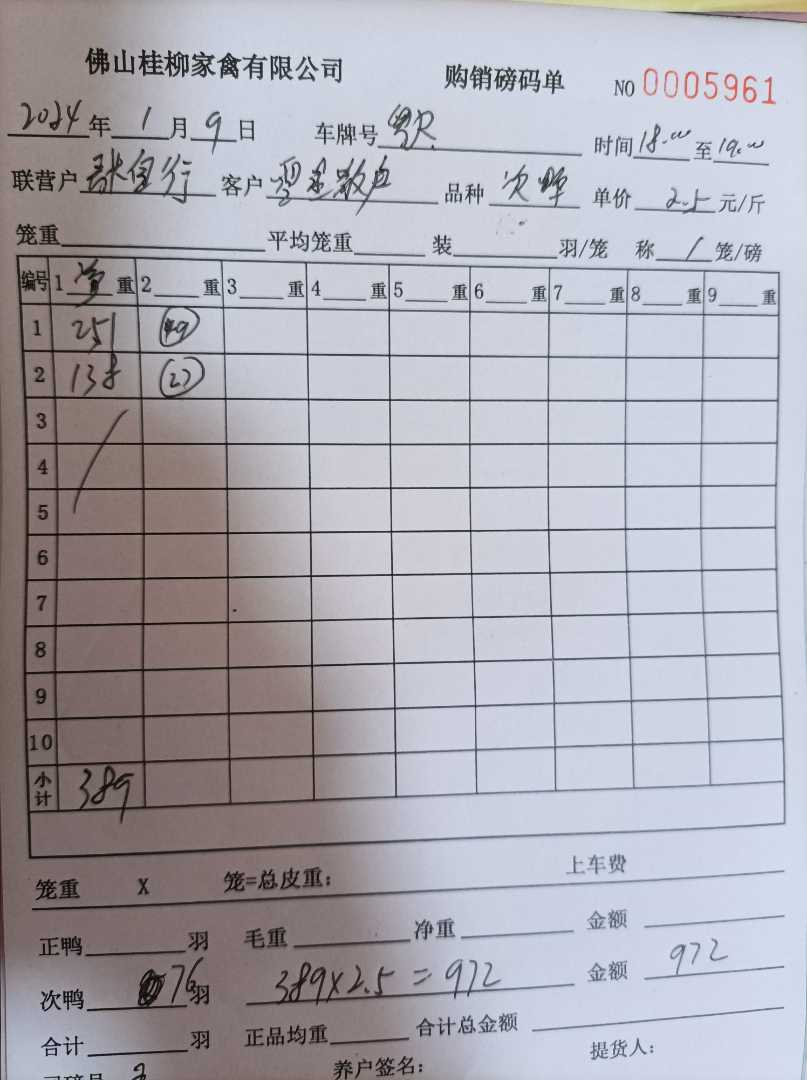 佛山桂柳家禽有限公司 购销磅码单 NO 0005961
2024年 1 月 9 日 车牌号 时间 18:00 至 19:00
联营户 客户 散户 品种 次鸭 单价 2.5 元/斤
笼重 平均笼重 装 羽/笼 称 1 笼/磅
编号 1 重 2 重 3 重 4 重 5 重 6 重 7 重 8 重 9 重
1 251 49
2 138 27
3
4
5
6
7
8
9
10
小计 389
笼重 X 笼=总皮重: 上车费
正鸭 羽 毛重 净重 金额
次鸭 76 羽 389×2.5=972 金额 972
合计 羽 正品均重 合计总金额
养户签名: 提货人: